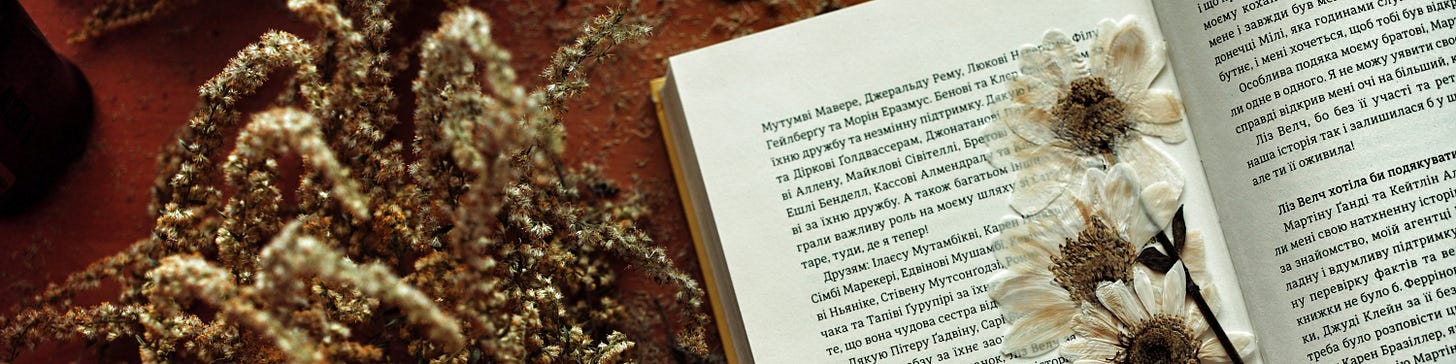 Мутумві Мавере, Джеральду Рему, Люкові Філу
Гейлбергу та Морін Еразмус. Бенові та Клер
їхню дружбу та незмінну підтримку. Дякую
та Діркові Ґолдвассерам, Джонатанові
ві Аллену, Майклові Сівітеллі, Бретові
Ешлі Бенделл, Кассові Алмендралу та
ві за їхню дружбу. А також багатьом іншим
грали важливу роль на моєму шляху зі
таре, туди, де я тепер!
Друзям: Ілаєсу Мутамбікві, Карен
Сімбі Марекері, Едвінові Мушамбі,
ві Ньяніке, Стівену Мутсонґоді,
чака та Тапіві Ґурупірі за їхн
те, що вона чудова сестра від
Дякую Пітеру Ґадвіну, Сарі
за їхнє
моєму
мене і завжди був
донечці Мілі, яка годинами
бутнє, і мені хочеться, щоб тобі був
Особлива подяка моєму братові,
ли одне в одного. Я не можу уявити
справді відкрив мені очі на більший,
Ліз Велч, бо без її участі та
наша історія так і залишилася б у
але ти її оживила!
Ліз Велч хотіла би подякувати
Мартіну Ґанді та Кейтлін
ли мені свою натхненну історію
за знайомство, моїй агентці
ладну і вдумливу підтримку
ну перевірку фактів та
книжки не було б. Ферріно
ки, Джуді Клейн за її
треба було розповісти
Бразіллер,